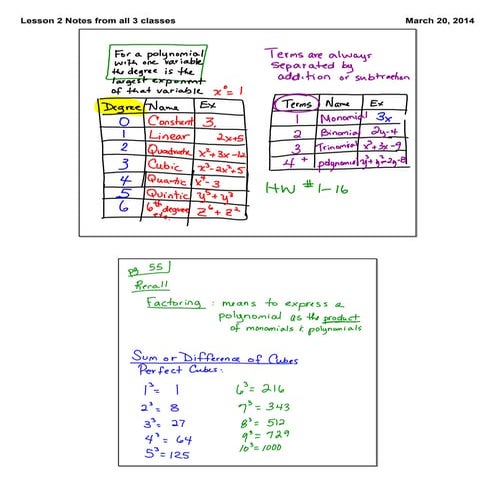 Lesson 2 Notes from all 3 classes March 20, 2014
For a polynomial
with one variable
the degree is the
largest exponent
of that variable x⁰ = 1
Degree Name Ex
0 Constant 3
1 Linear 2x+5
2 Quadratic x²+3x-12
3 Cubic x³-2x²+5
4 Quartic x⁴-3
5 Quintic y⁵+y³
6 6th degree etc. z⁶+z²
Terms are always
separated by
addition or subtraction
Terms Name Ex
1 Monomial 3x
2 Binomial 2y-4
3 Trinomial x²+3x-9
4+ polynomial y³+y²-2y-8
HW #1-16
pg 55
Recall
Factoring : means to express a
polynomial as the product
of monomials & polynomials
Sum or Difference of Cubes
Perfect Cubes:
1³ = 1 6³ = 216
2³ = 8 7³ = 343
3³ = 27 8³ = 512
4³ = 64 9³ = 729
5³ = 125 10³ = 1000